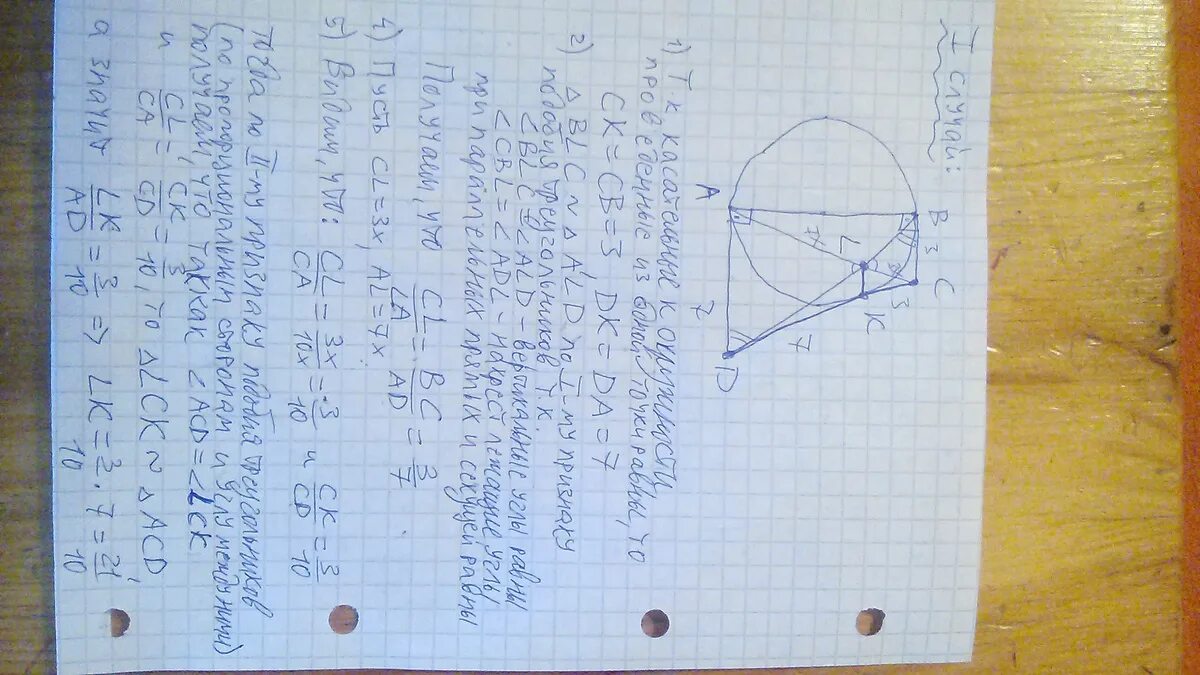 I случай:
B 3 C
L 3x 3 K
7x 7
A 7 D
1) Т.к касательные к окружности,
проведенные из одной точки равны, то
CK = CB = 3 DK = DA = 7
2) △ BLC ~ △ ALD по I-му признаку
подобия треугольников т.к.
∠BLC = ∠ALD - вертикальные углы равны
∠CBL = ∠ADL - накрест лежащие углы
при параллельных прямых и секущей равны
Получаем, что CL/LA = BC/AD = 3/7.
4) Пусть CL = 3x, AL = 7x.
5) Видим, что: CL/CA = 3x/10x = 3/10 и CK/CD = 3/10
тогда по II-му признаку подобия треугольников
(по пропорциональным сторонам и углу между ними)
получаем, что так как ∠ACD = ∠LCK
и CL/CA = CK/CD = 3/10, то △LCK ~ △ACD,
а значит LK/AD = 3/10 => LK = 3/10 · 7 = 21/10